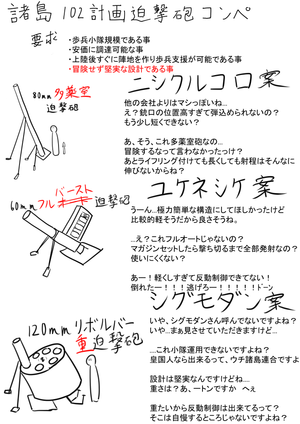 諸島102計画迫撃砲コンペ
要求
・歩兵小隊規模である事
・安価に調達可能な事
・上陸後すぐに陣地を作り歩兵支援が可能である事
・冒険せず堅実な設計である事
80mm多薬室
迫撃砲
ニシクルコロ案
他の会社よりはマシっぽいね…
え？銃口の位置高すぎて弾込められないの？
もう少し短くできない？
あ、そう、これ多薬室砲なの…
冒険するなって言わなかったっけ？
あとライフリング付けても長くしても射程はそんなに
伸びないからね？
バースト
60mmフルオート迫撃砲
ユケネシケ案
うーん…極力簡単な構造にしてほしかったけど
比較的軽そうだから良さそうね。
…え？これフルオートじゃないの？
マガジンセットしたら撃ち切るまで全部発射なの？
使いにくくない？
あー！軽くしすぎて反動制御できてない！
倒れたー！！！逃げろー！！！！！ﾄﾞｰﾝ
120mmリボルバー
重迫撃砲
シグモダン案
いや、シグモダンさん呼んでないですよね？
いや…まぁ見させていただきますけど…
…これ小隊運用できないですよね？
皇国人なら出来るって、ウチ諸島連合ですよ
設計は堅実なんですけどね…
重さは？あ、一トンですか　へぇ
重たいから反動制御は出来てるって？
そこは自慢するところじゃないですよね？